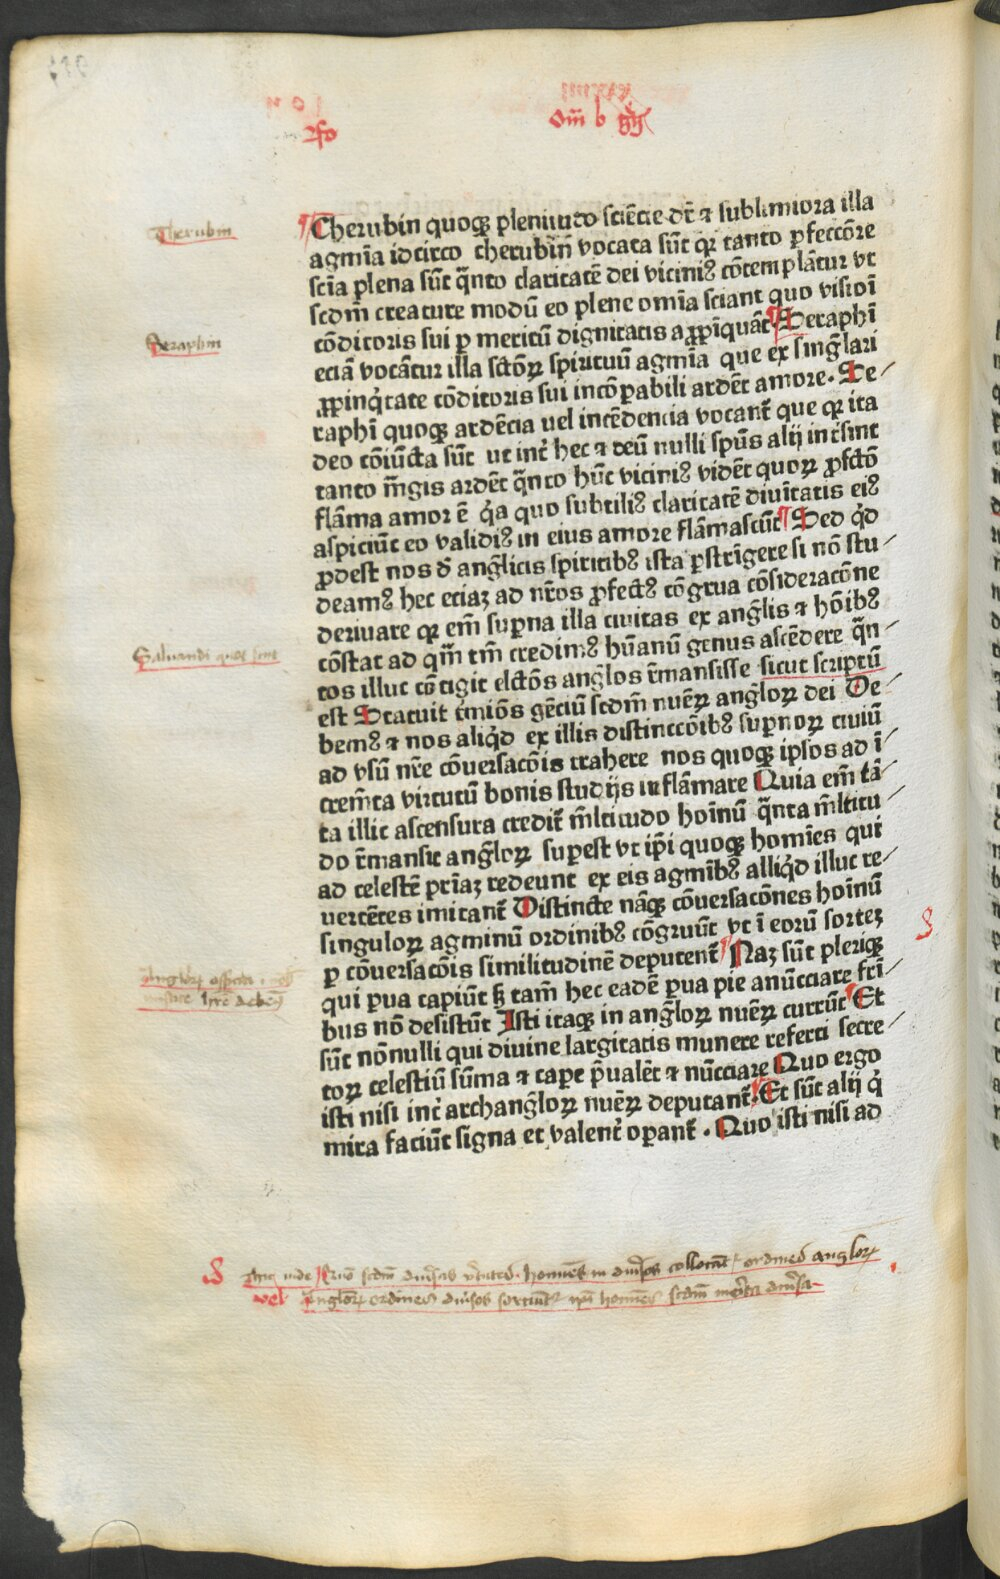 Om̄ b
fo
Cherubin
Cherubin quoqꝫ plenitudo sciẽcie dr̃ ⁊ sublimiora illa
agmĩa idcirco cherubin̄ vocata sũt qꝛ tanto ꝑfeccõre
scĩa plena sũt q̃nto claritatẽ dei viciniꝰ cõtemplãtur vt
scdm̄ creature modũ eo plene omĩa sciant quo visiõi
Seraphin
cõditoris sui ꝑ meritũ dignitatis aꝓpĩquãt Seraphĩ
eciã vocãtur illa sctõꝝ spirituũ agmĩa que ex singl̃ari
ꝓpinq̇tate cõditoris sui incõꝑabili ardẽt amore. Se⸗
raphĩ quoqꝫ ardẽcia uel incẽdencia vocant̃ que qꝛ ita
deo cõiũcta sũt ut int̃ hec ⁊ deũ nulli spũs alij int̃sint
tanto m̃gis ardẽt q̃nto hũc viciniꝰ vidẽt quoꝝ ꝓfctõ
flãma amor ẽ q̇a quo subtiliꝰ claritatẽ diuĩtatis eiꝰ
aspiciũt eo validiꝰ in eius amore flãmascũt Sed q̇d
ꝓdest nos d̃ angl̃icis spiritibꝰ ista ꝑstrĩgere si nõ stu⸗
deamꝰ hec eciaꝫ ad nr̃os ꝓfectꝰ cõgrua cõsideracõne
deriuare qꝛ em̃ suꝑna illa ciuitas ex angl̃is ⁊ hõibꝰ
Saluandi quot sint
cõstat ad qm̃ tm̃ credimꝰ hũanũ genus ascẽdere q̃n⸗
tos illuc cõtigit elctõs angl̃os r̃mansisse sicut scriptũ
est Statuit t̃miõs gẽciũ scdm̄ nuẽꝝ angl̃oꝝ dei De⸗
bemꝰ ⁊ nos aliq̇d ex illis distinccõibꝰ suꝑnoꝝ ciuiũ
ad vsũ nr̃e cõuersacõis trahere nos quoqꝫ ipsos ad ĩ⸗
crem̃ta virtutũ bonis studijs inflãmare Quia em̃ tã⸗
ta illic ascensura credit̃ ml̃titudo hoĩnũ q̃nta ml̃titu⸗
do r̃mansit angl̃oꝝ suꝑest vt ip̃i quoqꝫ homĩes qui
ad celestẽ pr̃iaꝫ redeunt ex eis agmĩbꝰ alliq̇d illuc re⸗
uertẽtes imitant̃ Distincte nãqꝫ cõuersacõnes hoĩnũ
singuloꝝ agminũ ordinibꝰ cõgruũt vt ĩ eorũ sorteꝫ
ꝑ cõuersacõis similitudinẽ deputent̃ Naꝫ sũt pleriqꝫ
qui ꝑua capiũt sꝫ tam̃ hec eadẽ ꝑua pie anũcciare fr̃i⸗
bus nõ desistũt Isti itaqꝫ in angl̃oꝝ nuẽꝝ currũt Et
sũt nõnulli qui diuine largitatis munere referti secre⸗
toꝝ celestiũ sũma ⁊ caꝑe p̃ualẽt ⁊ nũcciare Quo ergo
isti nisi int̃ archangl̃oꝝ nuẽꝝ deputant̃. Et sũt alij q̇
mira faciũt signa et valent̃ oꝑant̃. Quo isti nisi ad
vel